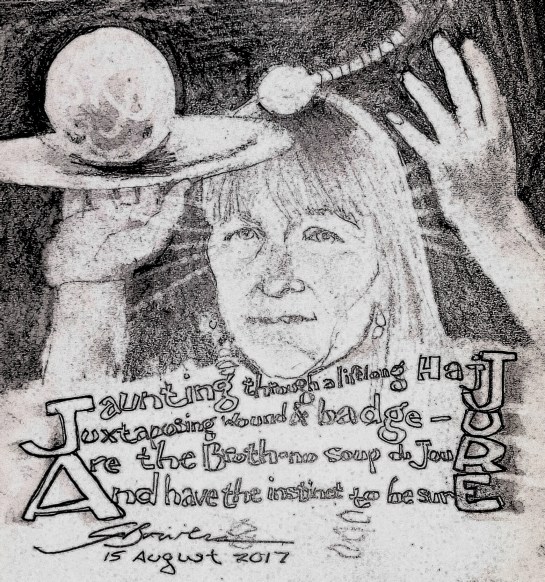 Jaunting through a lifelong HajJ
Juxtaposing wound & badge –
Are the Broth-no soup du JouR
And have the instinct to be surE
JURE
15 August 2017